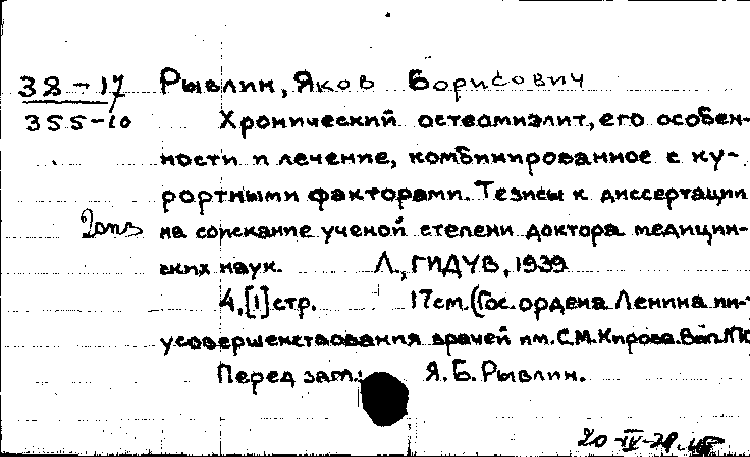 38-17 Рывлин, Яков Борисович
355-10 Хронический остеомиэлит, его особен-
ности и лечение, комбинированное с ку-
рортными факторами. Тезисы к диссертации
2опз на соискание ученой степени доктора медицин-
ских наук. Л., ГИДУВ, 1939
4, [1] стр. 17см. (Гос. ордена Ленина ин-
усовершенствования врачей им. С.М. Кирова.
Перед загл.: Я. Б. Рывлин.
20-IV-